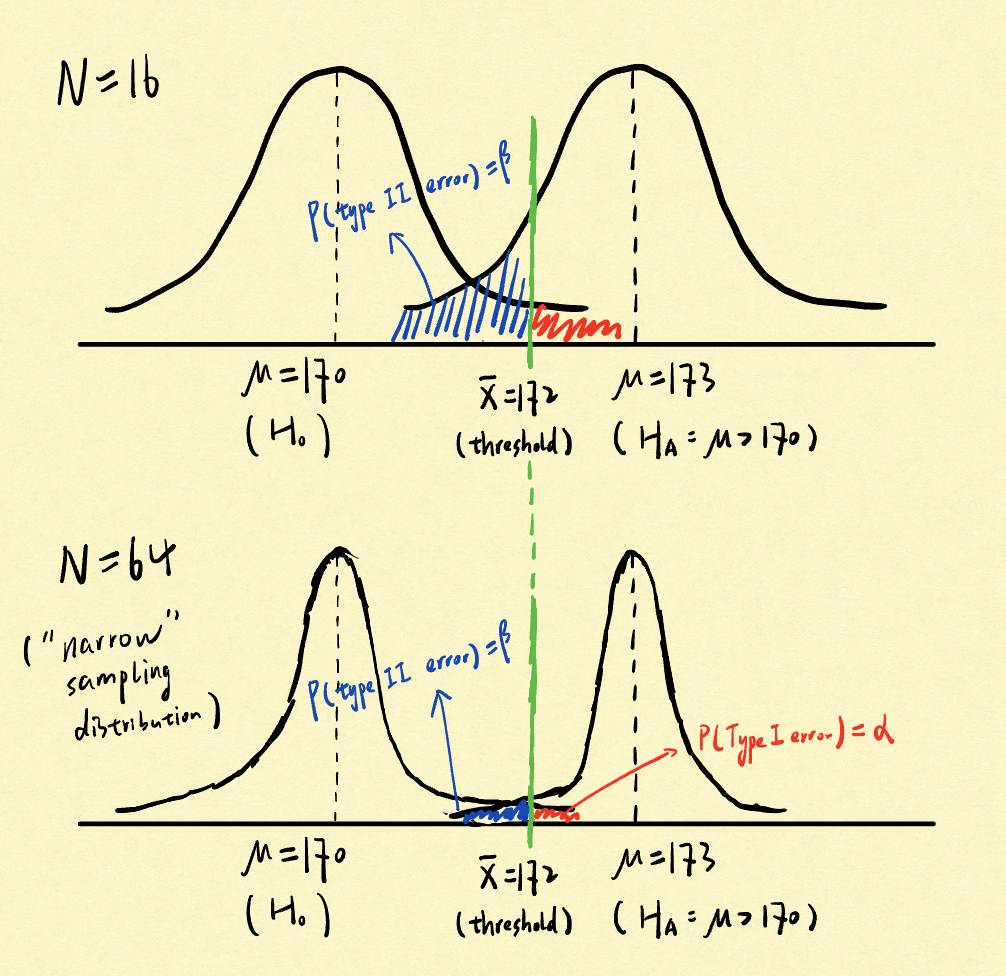 N=16
P(type II error)=β
μ=170
(H₀)
x̄=172
(threshold)
μ=173
(H_A=μ>170)
N=64
("narrow"
sampling
distribution)
P(type II error)=β
P(Type I error)=α
μ=170
(H₀)
x̄=172
(threshold)
μ=173
(H_A=μ>170)